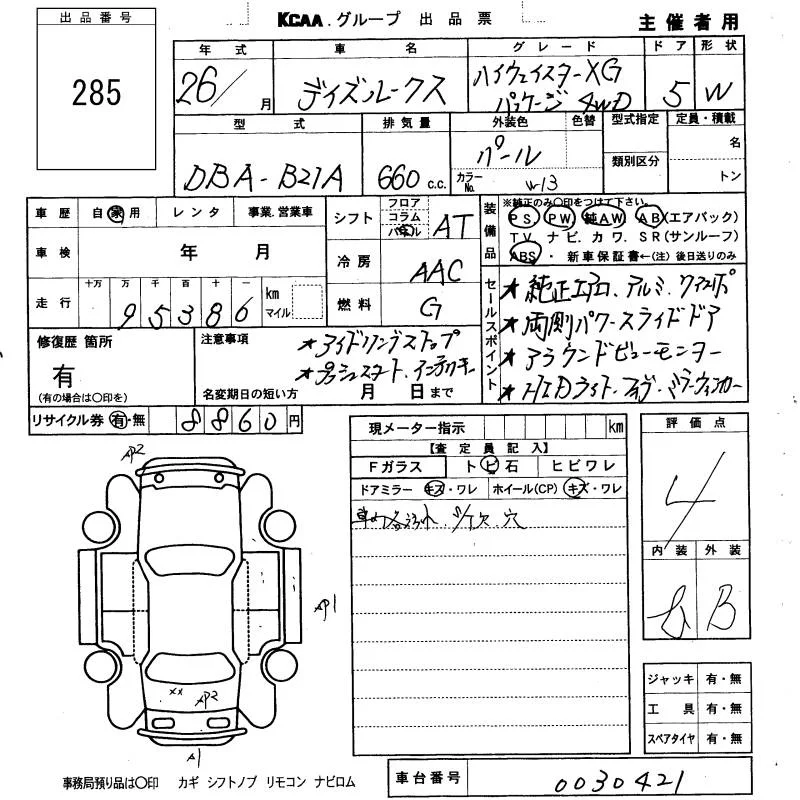 出品番号
285
KCAA.グループ 出品票
主催者用
年式 車名 グレード ドア 形状
26/ 月 デイズルークス ハイウェイスターXG パッケージ 4WD 5 W
型式 排気量 外装色 色替 型式指定 定員・積載
DBA-B21A 660 c.c. パール 名
類別区分
カラーNo. W13 トン
車歴 自家用 レンタ 事業.営業車
シフト フロア コラム AT
装備品 ※純正のみ○印をつけて下さい。
PS PW 純AW AB(エアバック)
TV ナビ. カワ. SR(サンルーフ)
ABS ・ 新車保証書←(注) 後日送りのみ
車検 年 月
冷房 AAC
走行 十万 万 千 百 十 一
95386 km マイル
燃料 G
セールスポイント
★純正エアロ、アルミ、
★両側パワースライドドア
★アラウンドビューモニター
★HIDライト、ミラーウィンカー
修復歴 箇所
有
(有の場合は○印を)
注意事項
★アイドリングストップ
★プッシュスタート、
名変期日の短い方 月 日まで
リサイクル券 有・無 8860円
現メーター指示 km
【査定員記入】
Fガラス トビ石 ヒビワレ
ドアミラー キズ・ワレ ホイール(CP) キズ・ワレ
穴
評価点
4
内装 外装
B
AP2
AP1
xx AP2
A1
ジャッキ 有・無
工具 有・無
スペアタイヤ 有・無
事務局預り品は○印 カギ シフトノブ リモコン ナビロム
車台番号 0030421